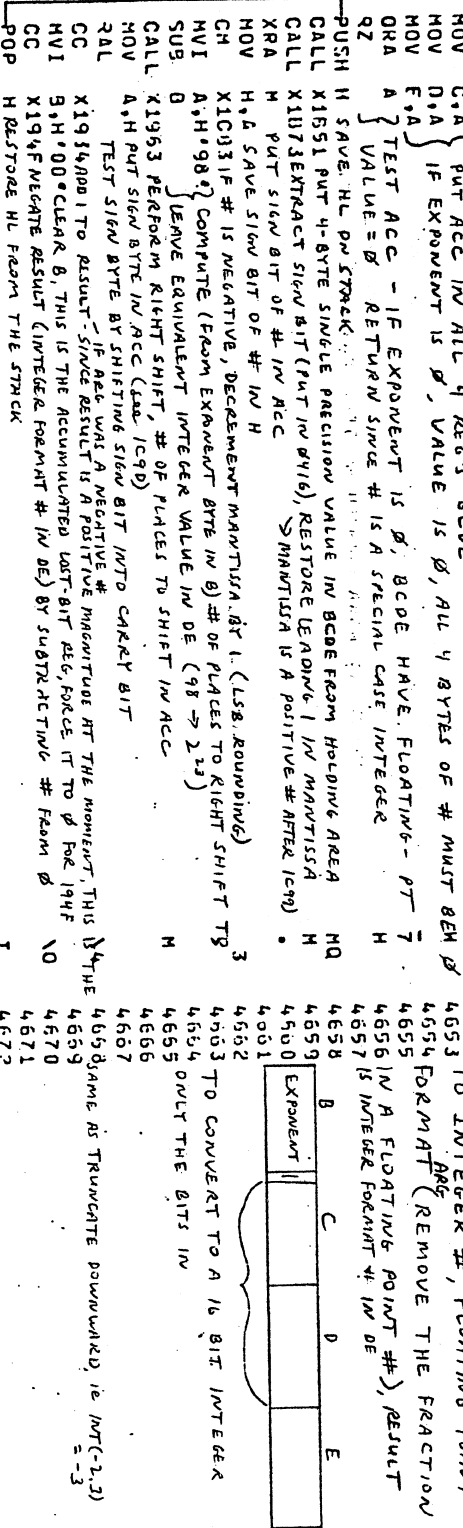 MOV C,A } PUT ACC IN ALL 4 REG'S
MOV D,A } IF EXPONENT IS Ø, VALUE IS Ø, ALL 4 BYTES OF # MUST BE Ø
MOV E,A
ORA A } TEST ACC - IF EXPONENT IS Ø, BCDE HAVE FLOATING-PT
RZ } VALUE = Ø RETURN SINCE # IS A SPECIAL CASE INTEGER
PUSH H SAVE HL ON STACK
CALL X1B51 PUT 4-BYTE SINGLE PRECISION VALUE IN BCDE FROM HOLDING AREA
CALL X1B73 EXTRACT SIGN BIT (PUT IN Ø416), RESTORE LEADING 1 IN MANTISSA
XRA M PUT SIGN BIT OF # IN ACC → MANTISSA IS A POSITIVE # AFTER 1C99)
MOV H,G SAVE SIGN BIT OF # IN H
CM X1CB3 IF # IS NEGATIVE, DECREMENT MANTISSA BY 1. (LSB ROUNDING)
MVI A,H'98' } COMPUTE (FROM EXPONENT BYTE IN B) # OF PLACES TO RIGHT SHIFT TO
SUB B } LEAVE EQUIVALENT INTEGER VALUE IN DE (98 → 2²³)
CALL X1963 PERFORM RIGHT SHIFT, # OF PLACES TO SHIFT IN ACC
MOV A,H PUT SIGN BYTE IN ACC (see 1C9D)
RAL TEST SIGN BYTE BY SHIFTING SIGN BIT INTO CARRY BIT
- IF ARG WAS A NEGATIVE #
CC X1934 ADD 1 TO RESULT - SINCE RESULT IS A POSITIVE MAGNITUDE AT THE MOMENT, THIS IS THE
MVI B,H'00' CLEAR B, THIS IS THE ACCUMULATED LOST-BIT REG, FORCE IT TO Ø FOR 194F
CC X194F NEGATE RESULT (INTEGER FORMAT # IN DE) BY SUBTRACTING # FROM Ø
POP H RESTORE HL FROM THE STACK
7
H
MQ
M
3
M
\4
\0
4653 TO INTEGER #, FLOATING POINT
4654 FORMAT (REMOVE THE FRACTION
4655 ARG
4656 IN A FLOATING POINT #), RESULT
4657 IS INTEGER FORMAT # IN DE
4658 B C D E
4659
4660 EXPONENT
4661
4662
4663 TO CONVERT TO A 16 BIT INTEGER
4664 ONLY THE BITS IN
4665
4666
4667
4668 SAME AS TRUNCATE DOWNWARD, ie INT(-2.3)
4669 = -3
4670
4671
4672